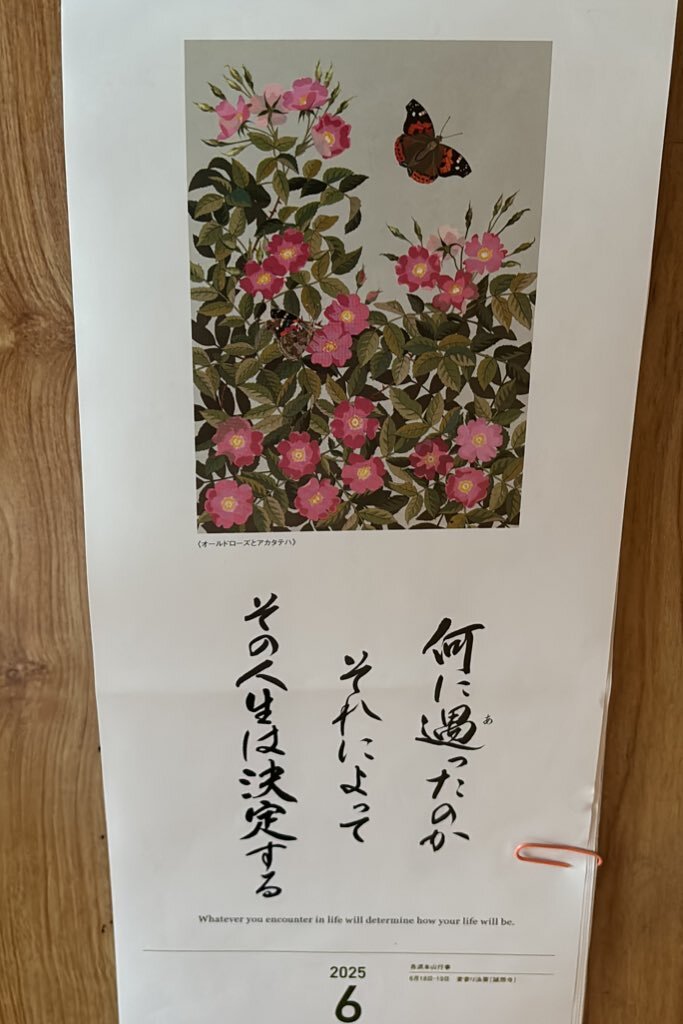 〈オールドローズとアカタテハ〉
何に遇ったのか
あ
それによって
その人生は決定する
Whatever you encounter in life will determine how your life will be.
2025
6
各派本山行事
6月18日・19日